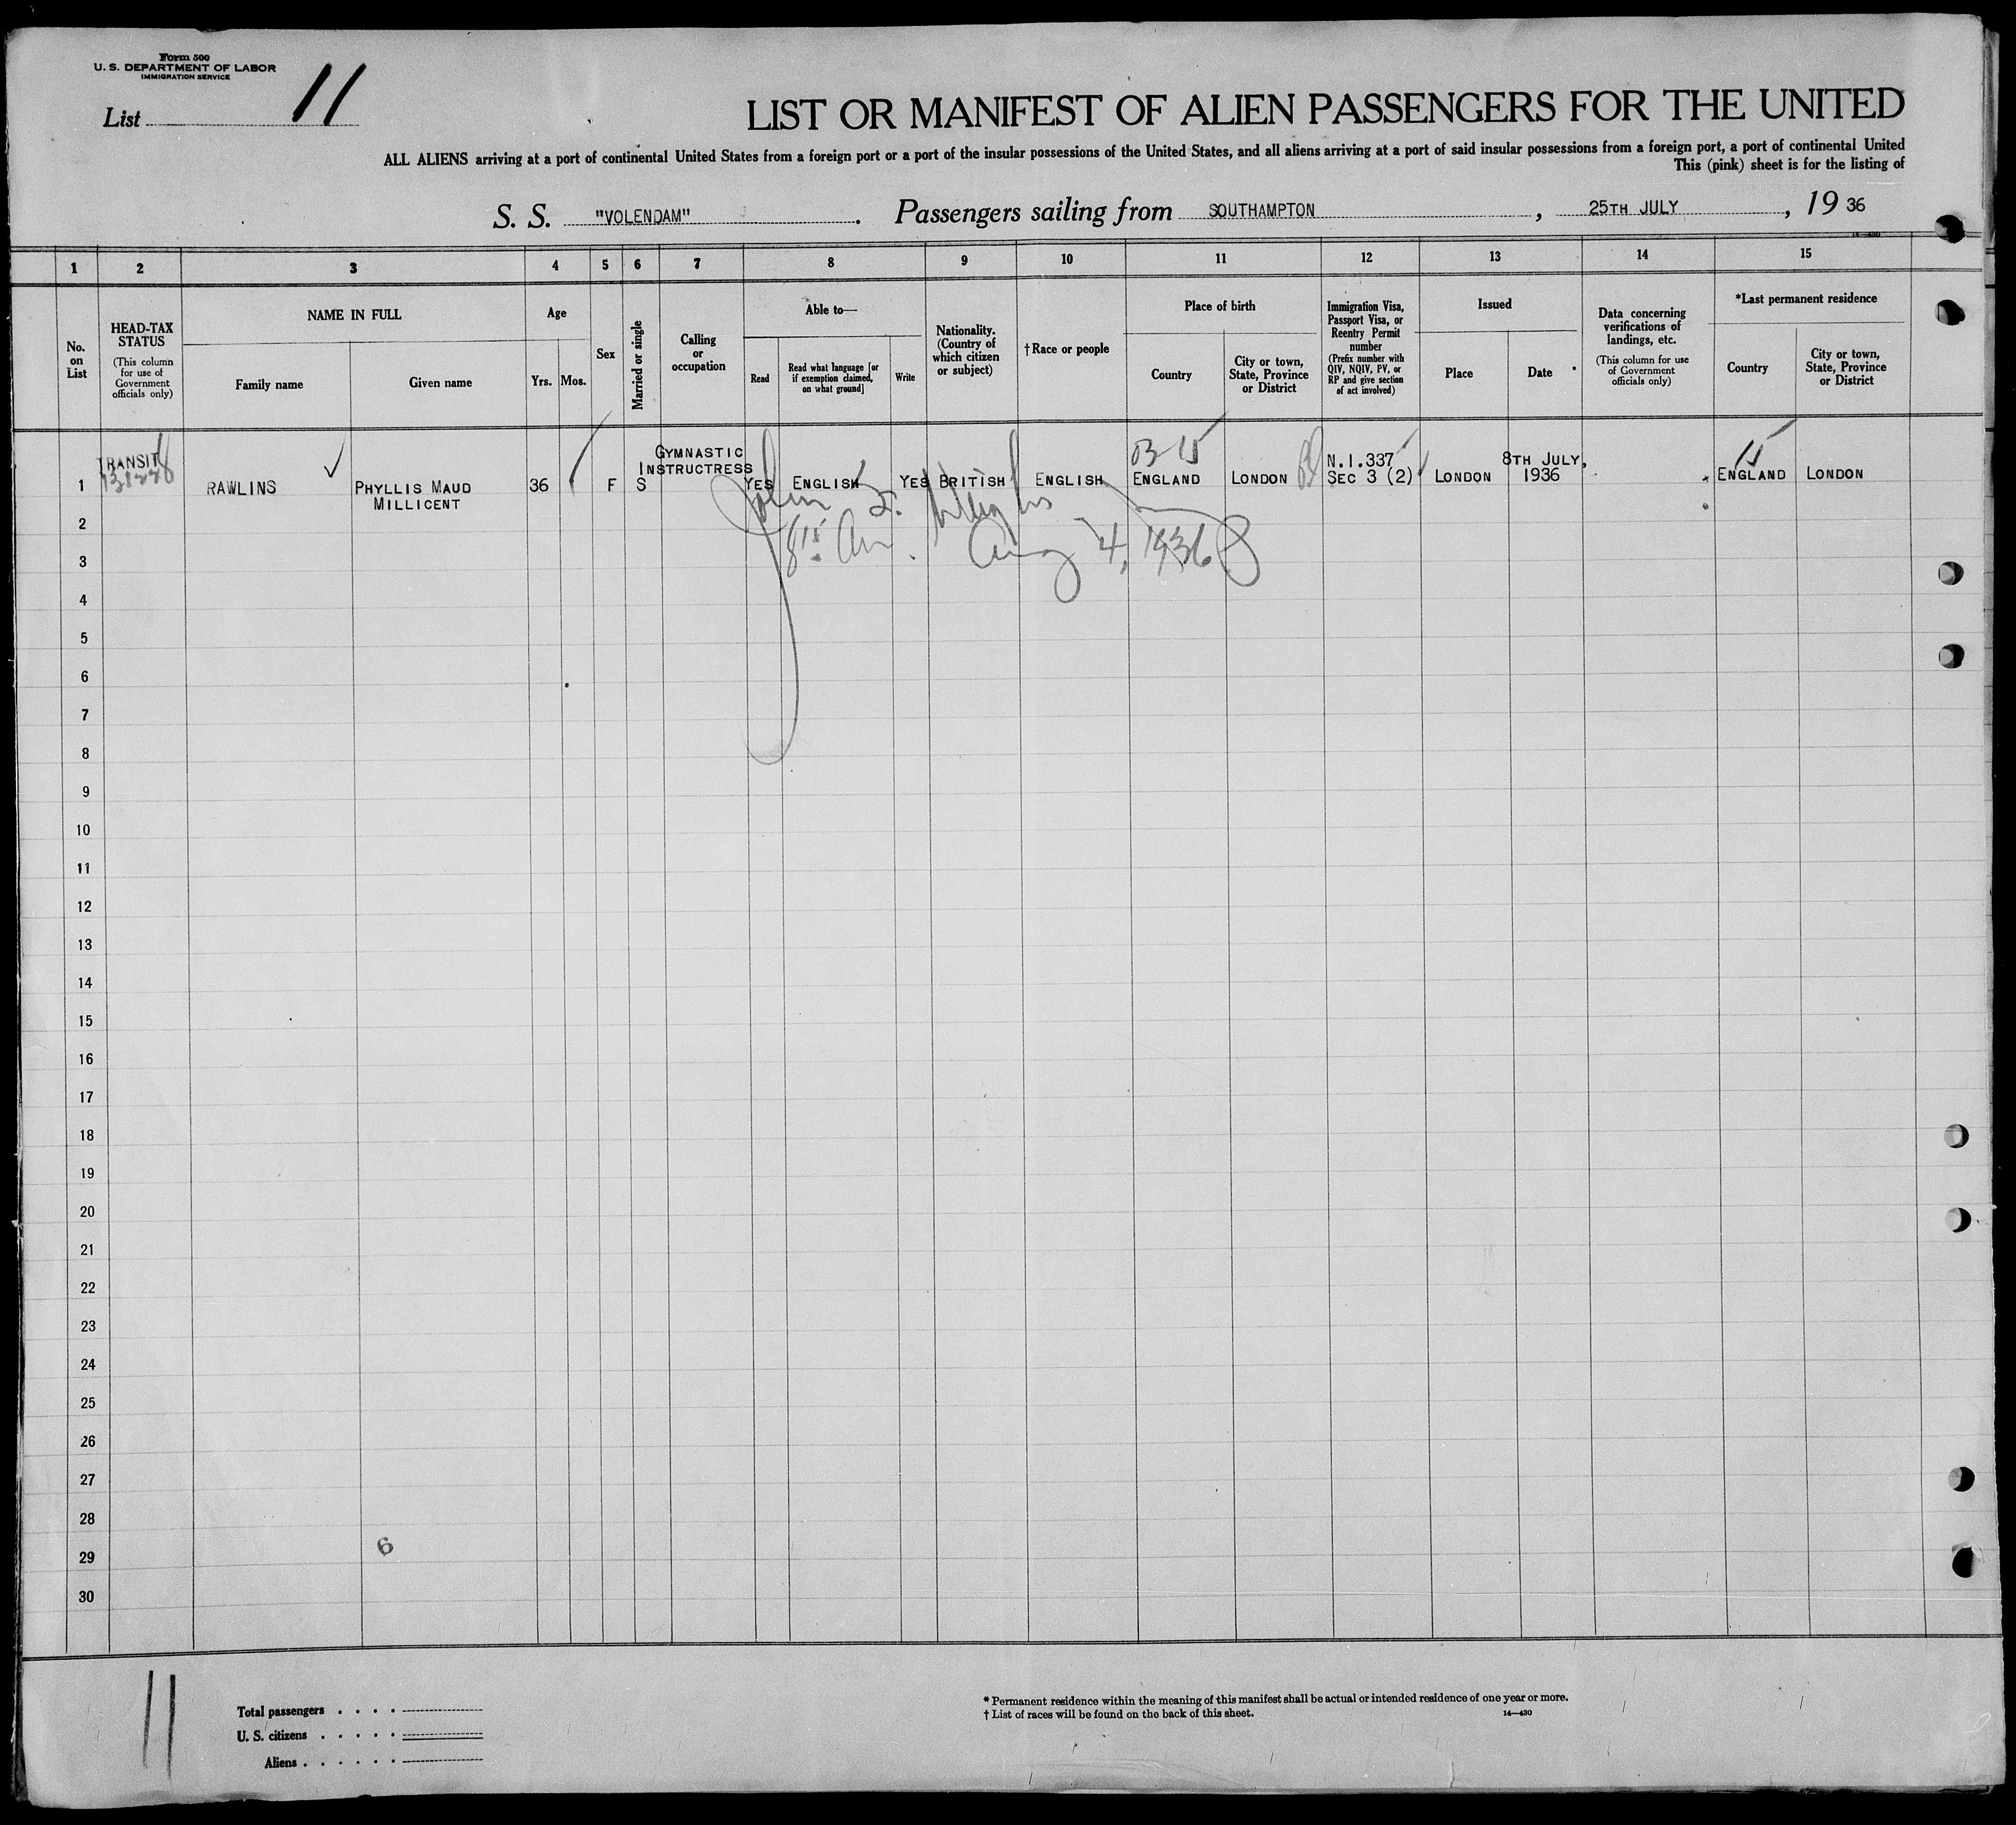 Form 500
U. S. DEPARTMENT OF LABOR
IMMIGRATION SERVICE
List 11
LIST OR MANIFEST OF ALIEN PASSENGERS FOR THE UNITED
ALL ALIENS arriving at a port of continental United States from a foreign port or a port of the insular possessions of the United States, and all aliens arriving at a port of said insular possessions from a foreign port, a port of continental United
This (pink) sheet is for the listing of
S. S. "VOLENDAM". Passengers sailing from SOUTHAMPTON, 25TH JULY, 1936
1 2 3 4 5 6 7 8 9 10 11 12 13 14 15
No. on List
HEAD-TAX STATUS
(This column for use of Government officials only)
NAME IN FULL
Family name
Given name
Age
Yrs. Mos.
Sex
Married or single
Calling or occupation
Able to—
Read
Read what language [or if exemption claimed, on what ground]
Write
Nationality. (Country of which citizen or subject)
†Race or people
Place of birth
Country
City or town, State, Province or District
Immigration Visa, Passport Visa, or Reentry Permit number
(Prefix number with QIV, NQIV, PV, or RP and give section of act involved)
Issued
Place
Date
Data concerning verifications of landings, etc.
(This column for use of Government officials only)
*Last permanent residence
Country
City or town, State, Province or District
1 TRANSIT RAWLINS PHYLLIS MAUD MILLICENT 36 F S GYMNASTIC INSTRUCTRESS YES ENGLISH YES BRITISH ENGLISH ENGLAND LONDON N.I.337 SEC 3 (2) LONDON 8TH JULY, 1936 ENGLAND LONDON
John
Aug 4, 1936
2
3
4
5
6
7
8
9
10
11
12
13
14
15
16
17
18
19
20
21
22
23
24
25
26
27
28
6
29
30
11
Total passengers . . . .
U. S. citizens . . . . .
Aliens . . . . . .
* Permanent residence within the meaning of this manifest shall be actual or intended residence of one year or more.
† List of races will be found on the back of this sheet.
14—430